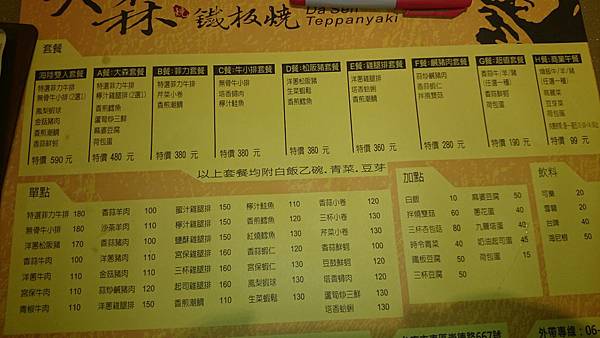 大森 鐵板燒 Da Sen Teppanyaki
套餐
海陸雙人套餐
特選菲力牛排
無骨牛小排(2選1)
鳳梨蝦球
金菇豬肉
香煎潮鯛
香蒜鮮蚵
特價 590 元
A餐:大森套餐
特選菲力牛排
檸汁雞腿排(2選1)
香煎鱈魚
蘆筍炒三鮮
麻婆豆腐
荷包蛋
特價 480 元
B餐:菲力套餐
特選菲力牛排
芹菜小卷
香煎潮鯛
特價 380 元
C餐:牛小排套餐
無骨牛小排
塔香蜆肉
檸汁鮭魚
特價 380 元
D餐:松阪豬套餐
洋蔥松阪豬
生菜蝦鬆
香煎鱈魚
特價 380 元
E餐:雞腿排套餐
洋蔥雞腿排
塔香蛤蜊
香煎潮鯛
特價 360 元
F餐:鹹豬肉套餐
蒜炒鹹豬肉
香蒜蝦仁
拌炒雙菇
特價 280 元
G餐:超值套餐
香蒜牛/羊/豬
(任選一種)
香蒜鮮蚵
荷包蛋
特價 190 元
H餐:商業午餐
燴飯牛/羊/豬
(任選一種)
高麗菜
豆芽菜
荷包蛋
特價 99 元
以上套餐均附白飯乙碗.青菜.豆芽
單點
特選菲力牛排 180
無骨牛小排 180
洋蔥松阪豬 170
香蒜牛肉 110
洋蔥牛肉 110
宮保牛肉 110
青椒牛肉 110
香蒜羊肉 100
沙茶羊肉 110
香蒜豬肉 100
洋蔥豬肉 110
金菇豬肉 110
蒜炒鹹豬肉 120
洋蔥雞腿排 150
蜜汁雞腿排 150
檸汁雞腿排 150
鹽酥雞腿排 150
宮保雞腿排 160
三杯雞腿排 160
起司雞腿排 160
香煎潮鯛 110
檸汁鮭魚 110
香煎鱈魚 120
紅燒鱈魚 130
香蒜蝦仁 120
宮保蝦仁 130
鳳梨蝦球 130
生菜蝦鬆 130
香蒜小卷 120
三杯小卷 130
芹菜小卷 130
香蒜鮮蚵 120
豆鼓鮮蚵 120
塔香蜆肉 120
蘆筍炒三鮮 130
塔香蛤蜊 130
加點
白飯 10
拌燒雙菇 60
三杯杏包菇 80
時令青菜 40
鐵板豆腐 40
三杯豆腐 50
麻婆豆腐 50
蔥花蛋 40
九層塔蛋 40
奶油起司蛋 45
荷包蛋 15
飲料
可樂 20
雪碧 20
台啤 40
海尼根 50
外帶專線:06-